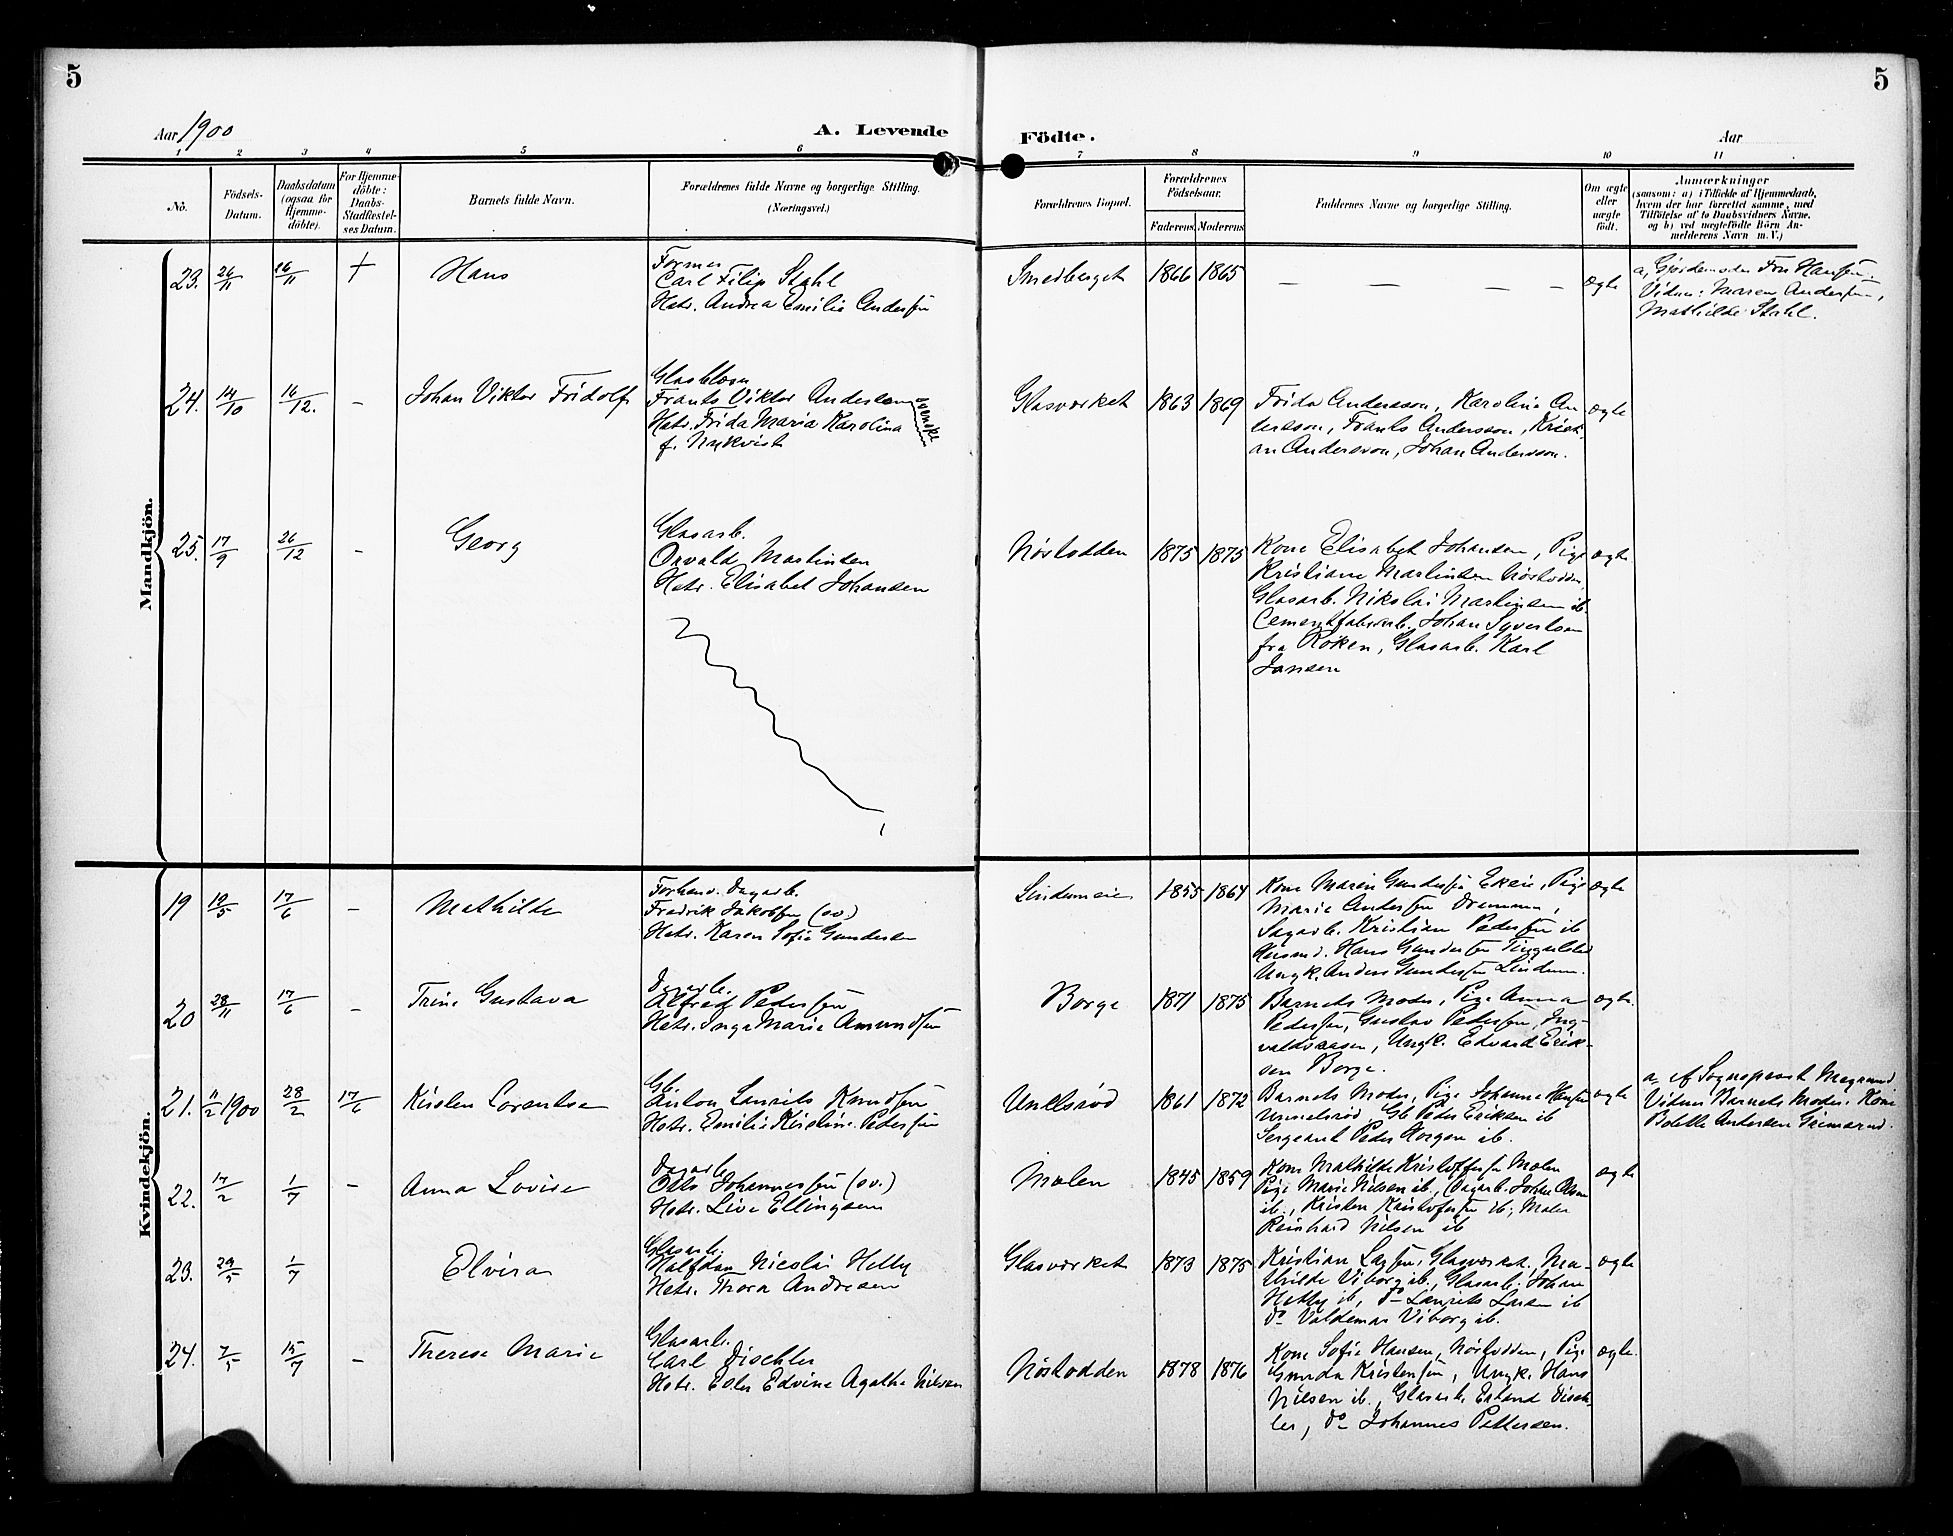 5
5
Aar 1900
A. Levende
Födte.
Aar
1 2 3 4 5 6 7 8 9 10 11
No.
Födsels-
Datum.
Daabsdatum
(ogsaa for
Hjemme-
döbte).
For Hjemme-
döbte:
Daabs-
Stadfæstel-
ses Datum.
Barnets fulde Navn.
Forældrenes fulde Navne og borgerlige Stilling.
(Næringsvei.)
Forældrenes Bopæl.
Forældrenes
Födselsaar.
Faderens. Moderens.
Faddernes Navne og borgerlige Stilling.
Om ægte
eller
uægte
født.
Anmærkninger
(saasom: a) i Tilfælde af Hjemmedaab,
hvem der har forrettet samme, med
Tilföielse af to Daabsvidners Navne.
og b) ved uægtefödte Börn An-
melderens Navn m. V.)
Mandkjön.
23. 26/11 26/11 + Hans
Former
Carl Filip Stahl
Hstr. Andrea Emilie Andersen
Smedberget 1866 1865 — — — — ægte
a, Gjordemoder Fru Hansen.
Vidner: Maren Andersen,
Mathilde Stahl.
24. 14/10 16/12. – Johan Viktor Fridolf
Glasblæser
Frants Viktor Anderson
Hstr. Frida Maria Karolina
f. Nykvist
svenske
Glasværket 1863 1869
Frida Andersson, Karolina An
dersson, Frants Andersson, Krist
an Andersson, Johan Andersson.
ægte
25. 17/9 26/12 – Georg
Glasarb.
Osvald Martinsen
Hstr. Elisabet Johansen
Nøstodden 1875 1875
Kone Elisabet Johansen, Pige
Kristiane Martinsen Nøstodden
Glasarb. Nikolai Martinsen ib.
Cementfabrikarb. Johan Syversen
fra Røken, Glasarb. Karl
Jansen
ægte
Kvindekjön.
19 19/5 17/6 – Mathilde
Forhenv. Dagarb.
Fredrik Jakobsen (sv.)
Hstr. Karen Sofie Gundersen
Lindumeie 1855 1864
Kone Maren Gundersen Ekeie, Pige
Marie Andersen Drammen,
Sagarb. Kristian Pedersen ib
Hans Gundersen Tingulstad
Ungk. Anders Gundersen Lindum.
ægte
20 28/11 17/6 – Trine Gustava
Dagarb.
Alfred Pedersen
Hstr. Inga Marie Amundsen
Borge 1871 1875
Barnets Moder, Pige Anna
Pedersen, Gustav Pedersen, Ing-
valdsaasen, Ungk. Edvard Erik-
sen Borge.
ægte
21. 11/2 1900 28/2 17/6 Kirsten Lorentse
Gb.
Laurits Knudsen
Hstr. Emilie Kristine Pedersen
Unelsrød 1861 1872
Barnets Moder, Pige Johanne Hansen
Unnelsrød, Gb Peder Eriksen ib
Sergeant Peder Horgen ib.
ægte
a- af Sogneprest
Vidner Barnets Moder. Kone
Bolette Andersen
22. 17/2 1/7 – Anna Lovise
Dagarb.
Otto Johannessen (sv.)
Hstr. Live Ellingsen
Molen 1845 1859
Kone Mathilde Kristoffersen Molen
Pige Marie Nilsen ib., Dagarb. Johan Olsen
ib., Kristen Kristoffersen ib, Maler
Reinhard Nilsen ib
ægte
23. 29/5 1/7 Elvira
Glasarb.
Halfdan Nicolai Helby
Hstr. Thora Andresen
Glasværket 1873 1875
Kristian Larsen, Glasværket, Ma-
thilde Viborg ib., Glasarb. Johan
Helby ib, do Laurits Larsen ib
do Valdemar Viborg ib.
ægte
24. 7/5 15/7 – Therese Marie
Glasarb.
Carl Dischler
Hstr. Edvine Agathe Nilsen
Nøstodden 1878 1876
Kone Sofie Hansen, Nøstodden, Pige
Gunda Kristensen, Ungk. Hans
Nilsen ib., Glasarb. Erland Disch-
ler, do Johannes Pettersen.
ægte